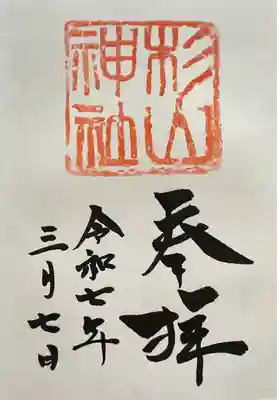 杉山
神社
奉拝
令和七年
三月七日